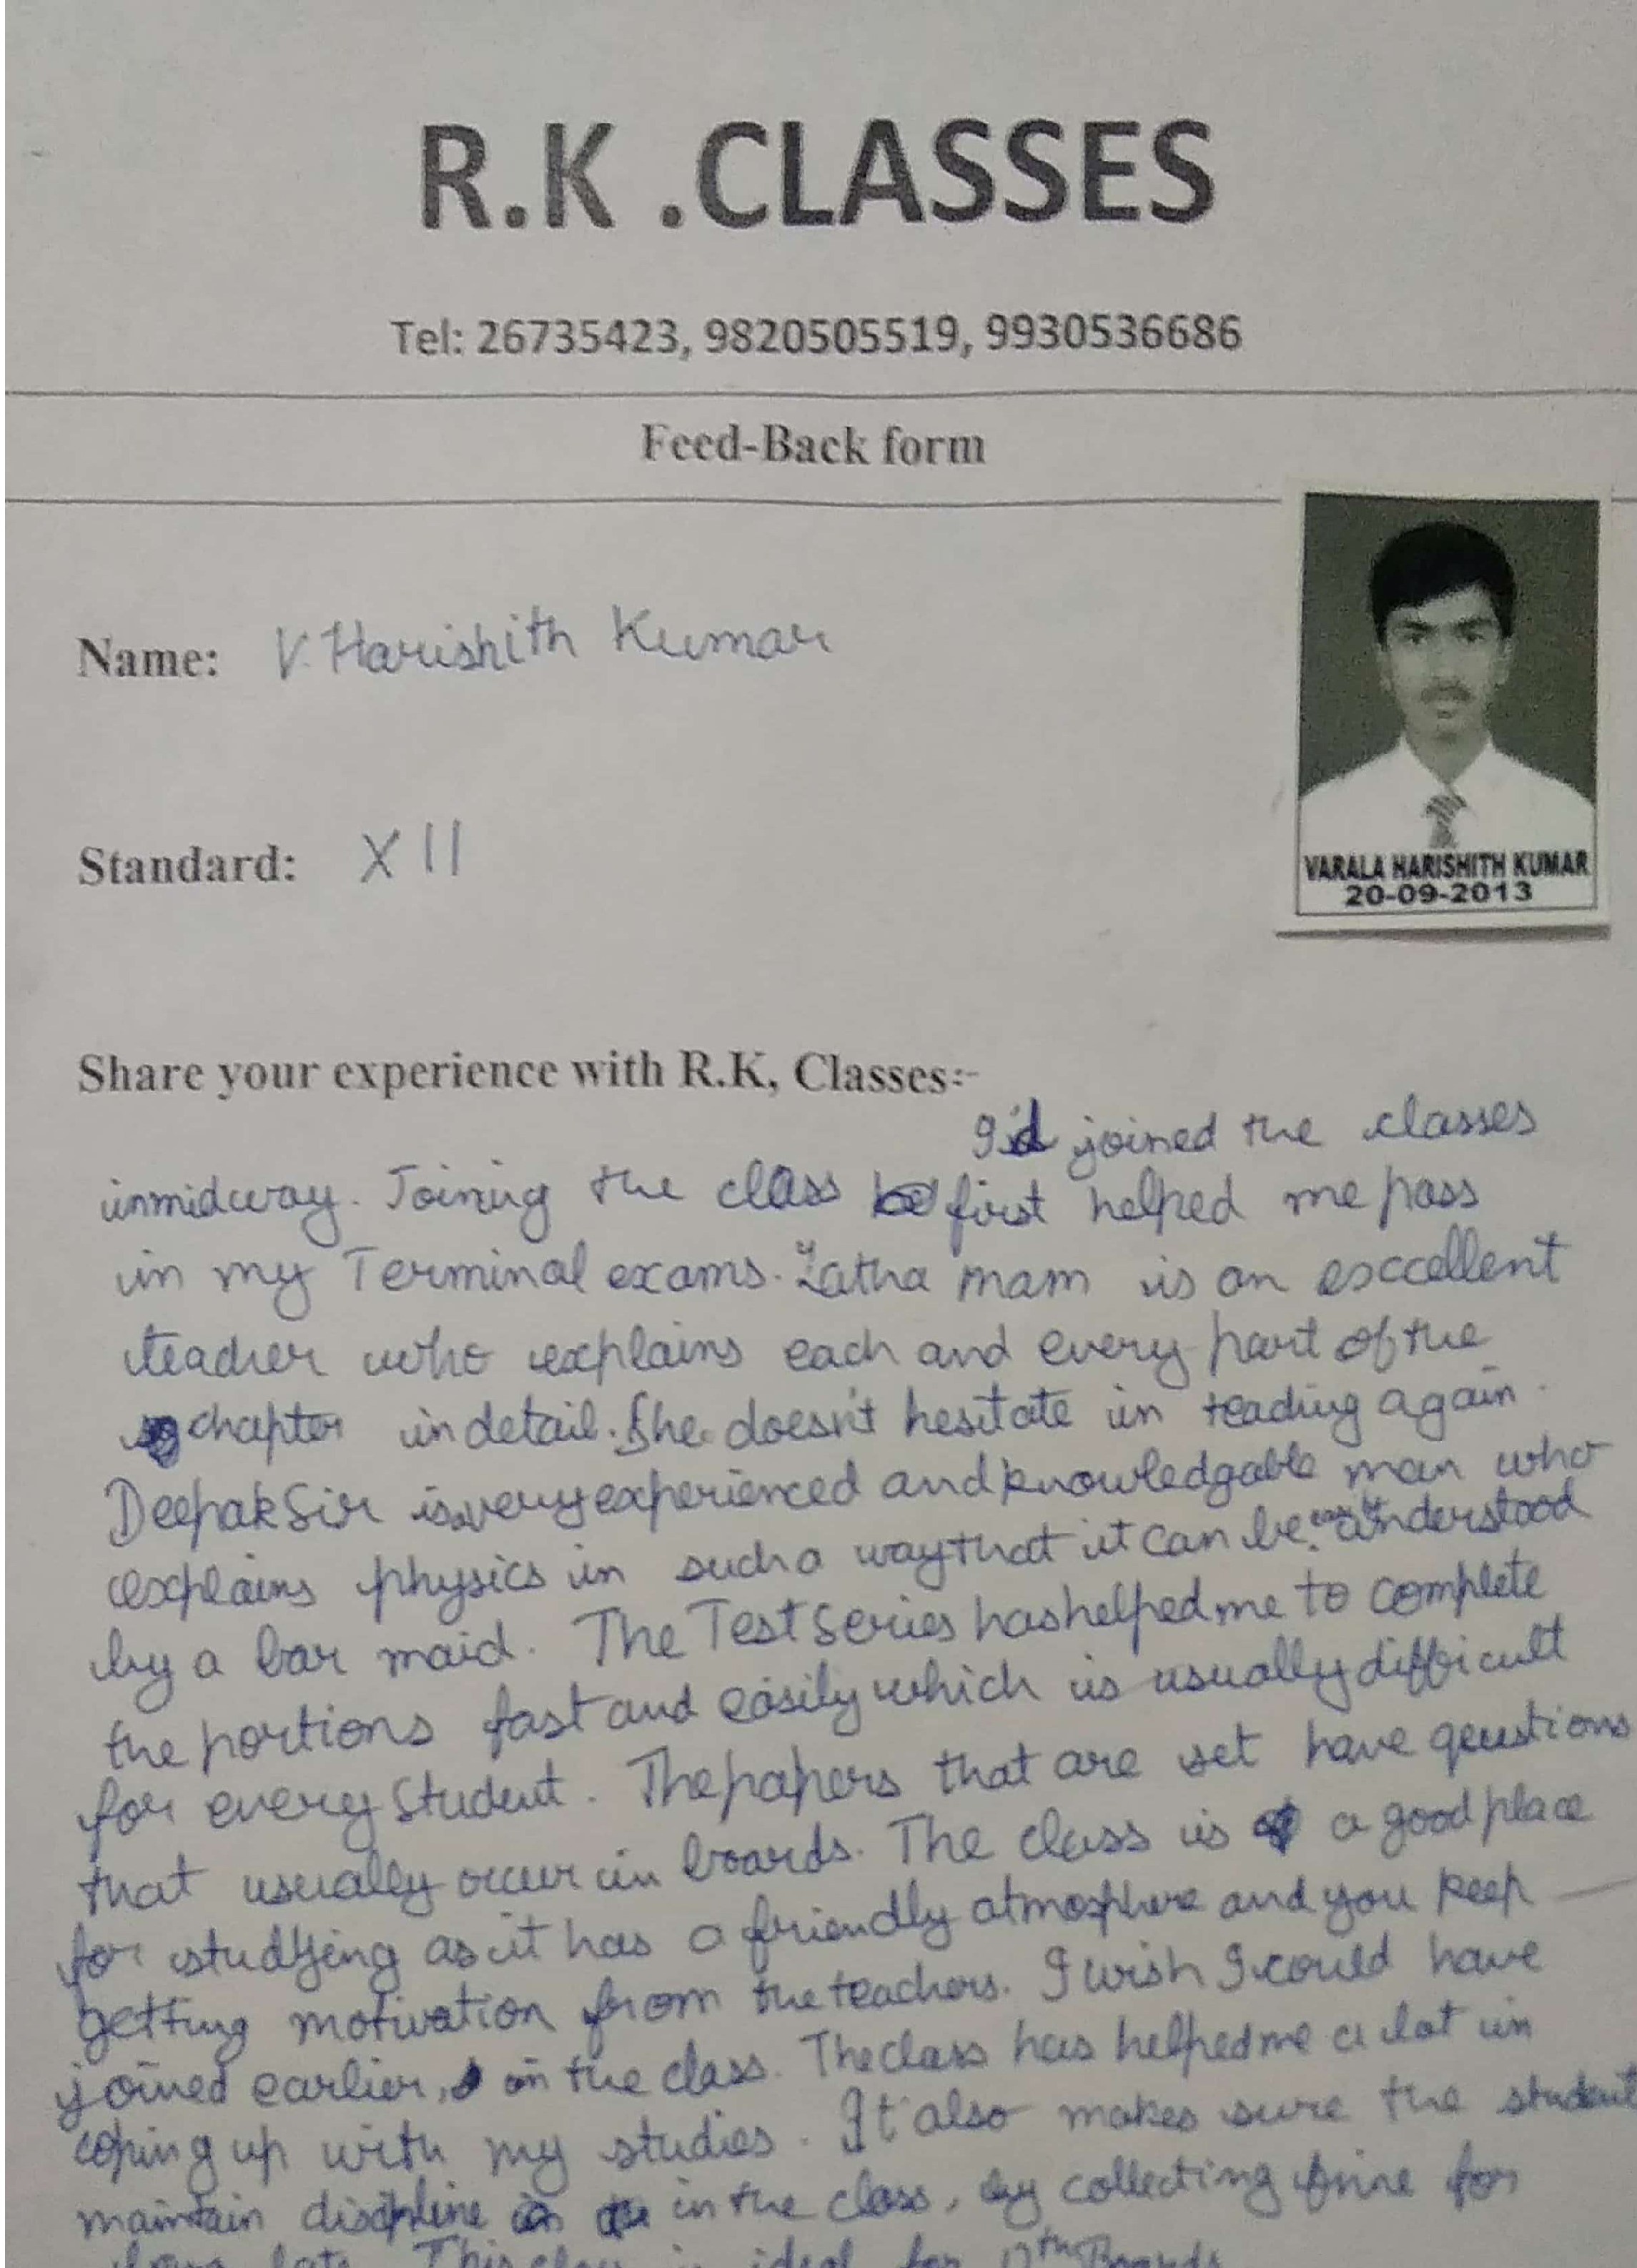 R.K .CLASSES
Tel: 26735423, 9820505519, 9930536686
Feed-Back form
Name: V. Harishith Kumar
VARALA HARISHITH KUMAR
20-09-2013
Standard: XII
Share your experience with R.K, Classes:-
I'd joined the classes
inmidway. Joining the class first helped me pass
in my Terminal exams. Latha mam is an exccellent
teacher who explains each and every part of the
chapter in detail. She doesn't hesitate in teaching again.
Deepak Sir is very experienced and knowledgable man who
explains physics in such a way that it can be easily understood
by a bar maid. The Test Series has helped me to complete
the portions fast and easily which is usually difficult
for every student. The papers that are set have qeustions
that usually occur in boards. The class is a good place
for studying as it has a friendly atmosphere and you keep
getting motivation from the teachers. I wish I could have
joined earlier, in the class. The class has helped me a lot in
coping up with my studies. It also makes sure the student
maintain discipline in the class, by collecting fine for
late. This class is ideal for 12th Boards.